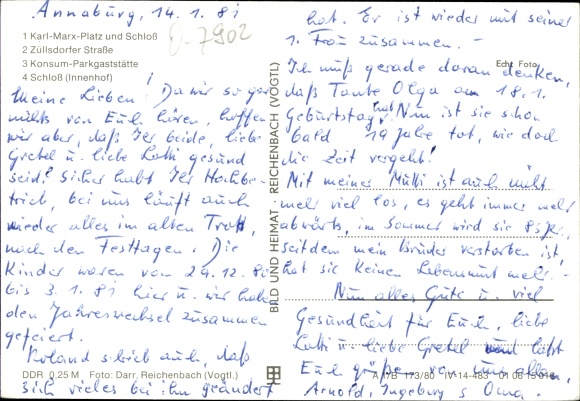 Annaburg, 14.1.81
1 Karl-Marx-Platz und Schloß
2 Züllsdorfer Straße
3 Konsum-Parkgaststätte
4 Schloß (Innenhof)
0-7902
Meine Lieben! Da wir so gar
nichts von Euch hören, hoffen
wir aber, daß Ihr beide, liebe
Gretel u. liebe Lotti gesund
seid? Sicher habt Ihr Hochbe-
trieb, bei uns läuft auch
wieder alles im alten Trott,
nach den Festtagen. Die
Kinder waren vom 24.12.80
bis 3.1.81 hier u. wir haben
den Jahreswechsel zusammen
gefeiert.
Roland schrieb auch, daß
sich vieles bei ihm geändert
DDR 0,25 M Foto: Darr, Reichenbach (Vogtl.)
BILD UND HEIMAT · REICHENBACH (VOGTL)
hat. Er ist wieder mit seiner
1. Frau zusammen. -
Echt Foto
Ich muß gerade daran denken,
daß Tante Olga am 18.1.
Geburtstag hat. Nun ist sie schon
bald 19 Jahre tot, wie doch
die Zeit vergeht!
Mit meiner Mutti ist auch nicht
mehr viel los, es geht immer mehr
abwärts, im Sommer wird sie 85 Jhr.,
seitdem mein Bruder verstorben ist,
hat sie keinen Lebensmut mehr. -
Nun alles Gute u. viel
Gesundheit für Euch, liebe
Lotti u. liebe Gretel und laßt
Euch grüßen von uns allen,
Arnold, Ingeburg u. Oma.
A 1/B 173/80 IV-14-483 01 06 13 016